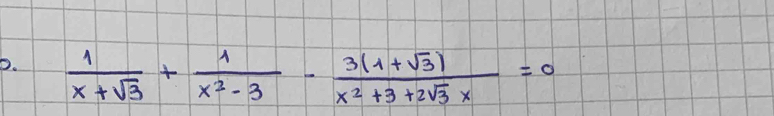 b. 1/(x + √3) + 1/(x² - 3) - 3(1 + √3)/(x² + 3 + 2√3 x) = 0